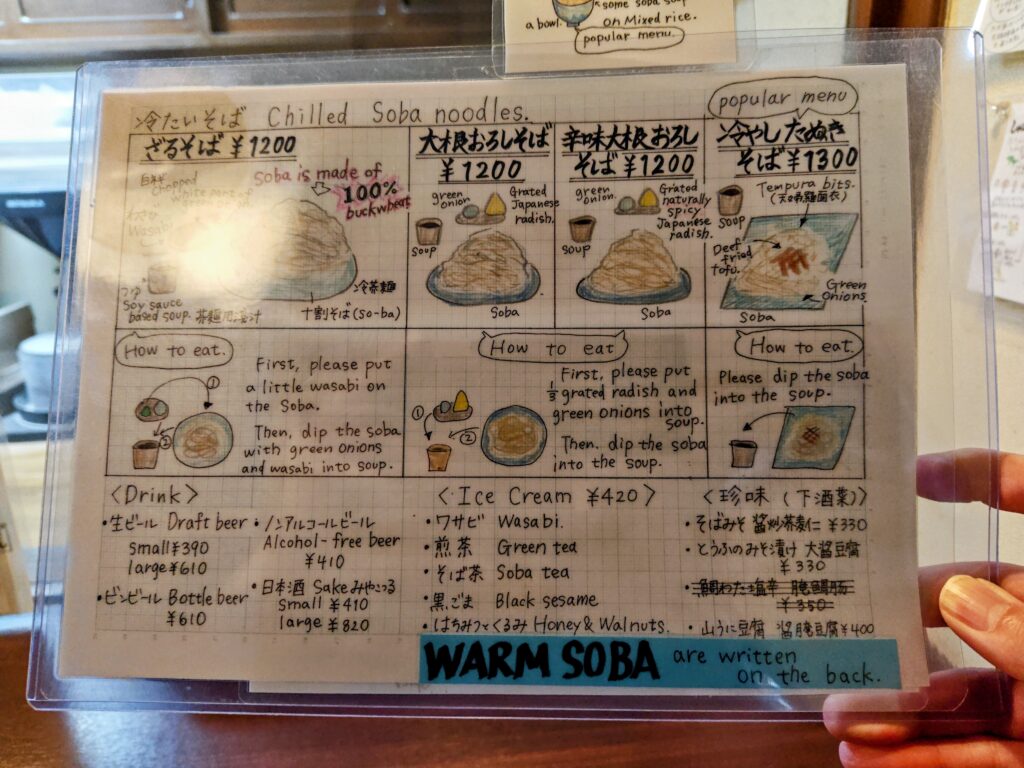 some soba soup
a bowl.
on Mixed rice.
popular menu.
冷たいそば Chilled Soba noodles.
popular menu
ざるそば ¥1200
Soba is made of
100%
buckwheat
Chopped
white part of
わさび
Wasabi
つゆ
Soy sauce
based soup.
冷茶麺
十割そば(so-ba)
大根おろしそば
¥1200
green
onion
Grated
Japanese
radish.
soup
Soba
辛味大根おろし
そば¥1200
green
onion.
Grated
naturally
spicy
Japanese
radish.
soup
Soba
冷やしたぬき
そば¥1300
Tempura bits.
soup
Deef
fried
tofu.
Green
Onions.
Soba
How to eat.
①
②
First, please put
a little wasabi on
the Soba.
Then, dip the soba
with green onions
and wasabi into soup.
How to eat
①
②
First, please put
1/3 grated radish and
green onions into
soup.
Then, dip the soba
into the soup.
How to eat.
Please dip the soba
into the soup.
〈Drink〉
・生ビール Draft beer
small¥390
large¥610
・ビンビール Bottle beer
¥610
・ノンアルコールビール
Alcohol-free beer
¥410
・日本酒 Sake みやこつる
small ¥410
large ¥820
〈Ice Cream ¥420〉
・ワサビ Wasabi.
・煎茶 Green tea
・そば茶 Soba tea
・黒ごま Black sesame
・はちみつとくるみ Honey & Walnuts.
〈珍味 (下酒菜)〉
・そばみそ 醤炒荞麦仁 ¥330
・とうふのみそ漬け 大醤豆腐
¥330
・鯛わた塩辛
¥350
・山うに豆腐 醤腌豆腐 ¥400
WARM SOBA are written
on the back.